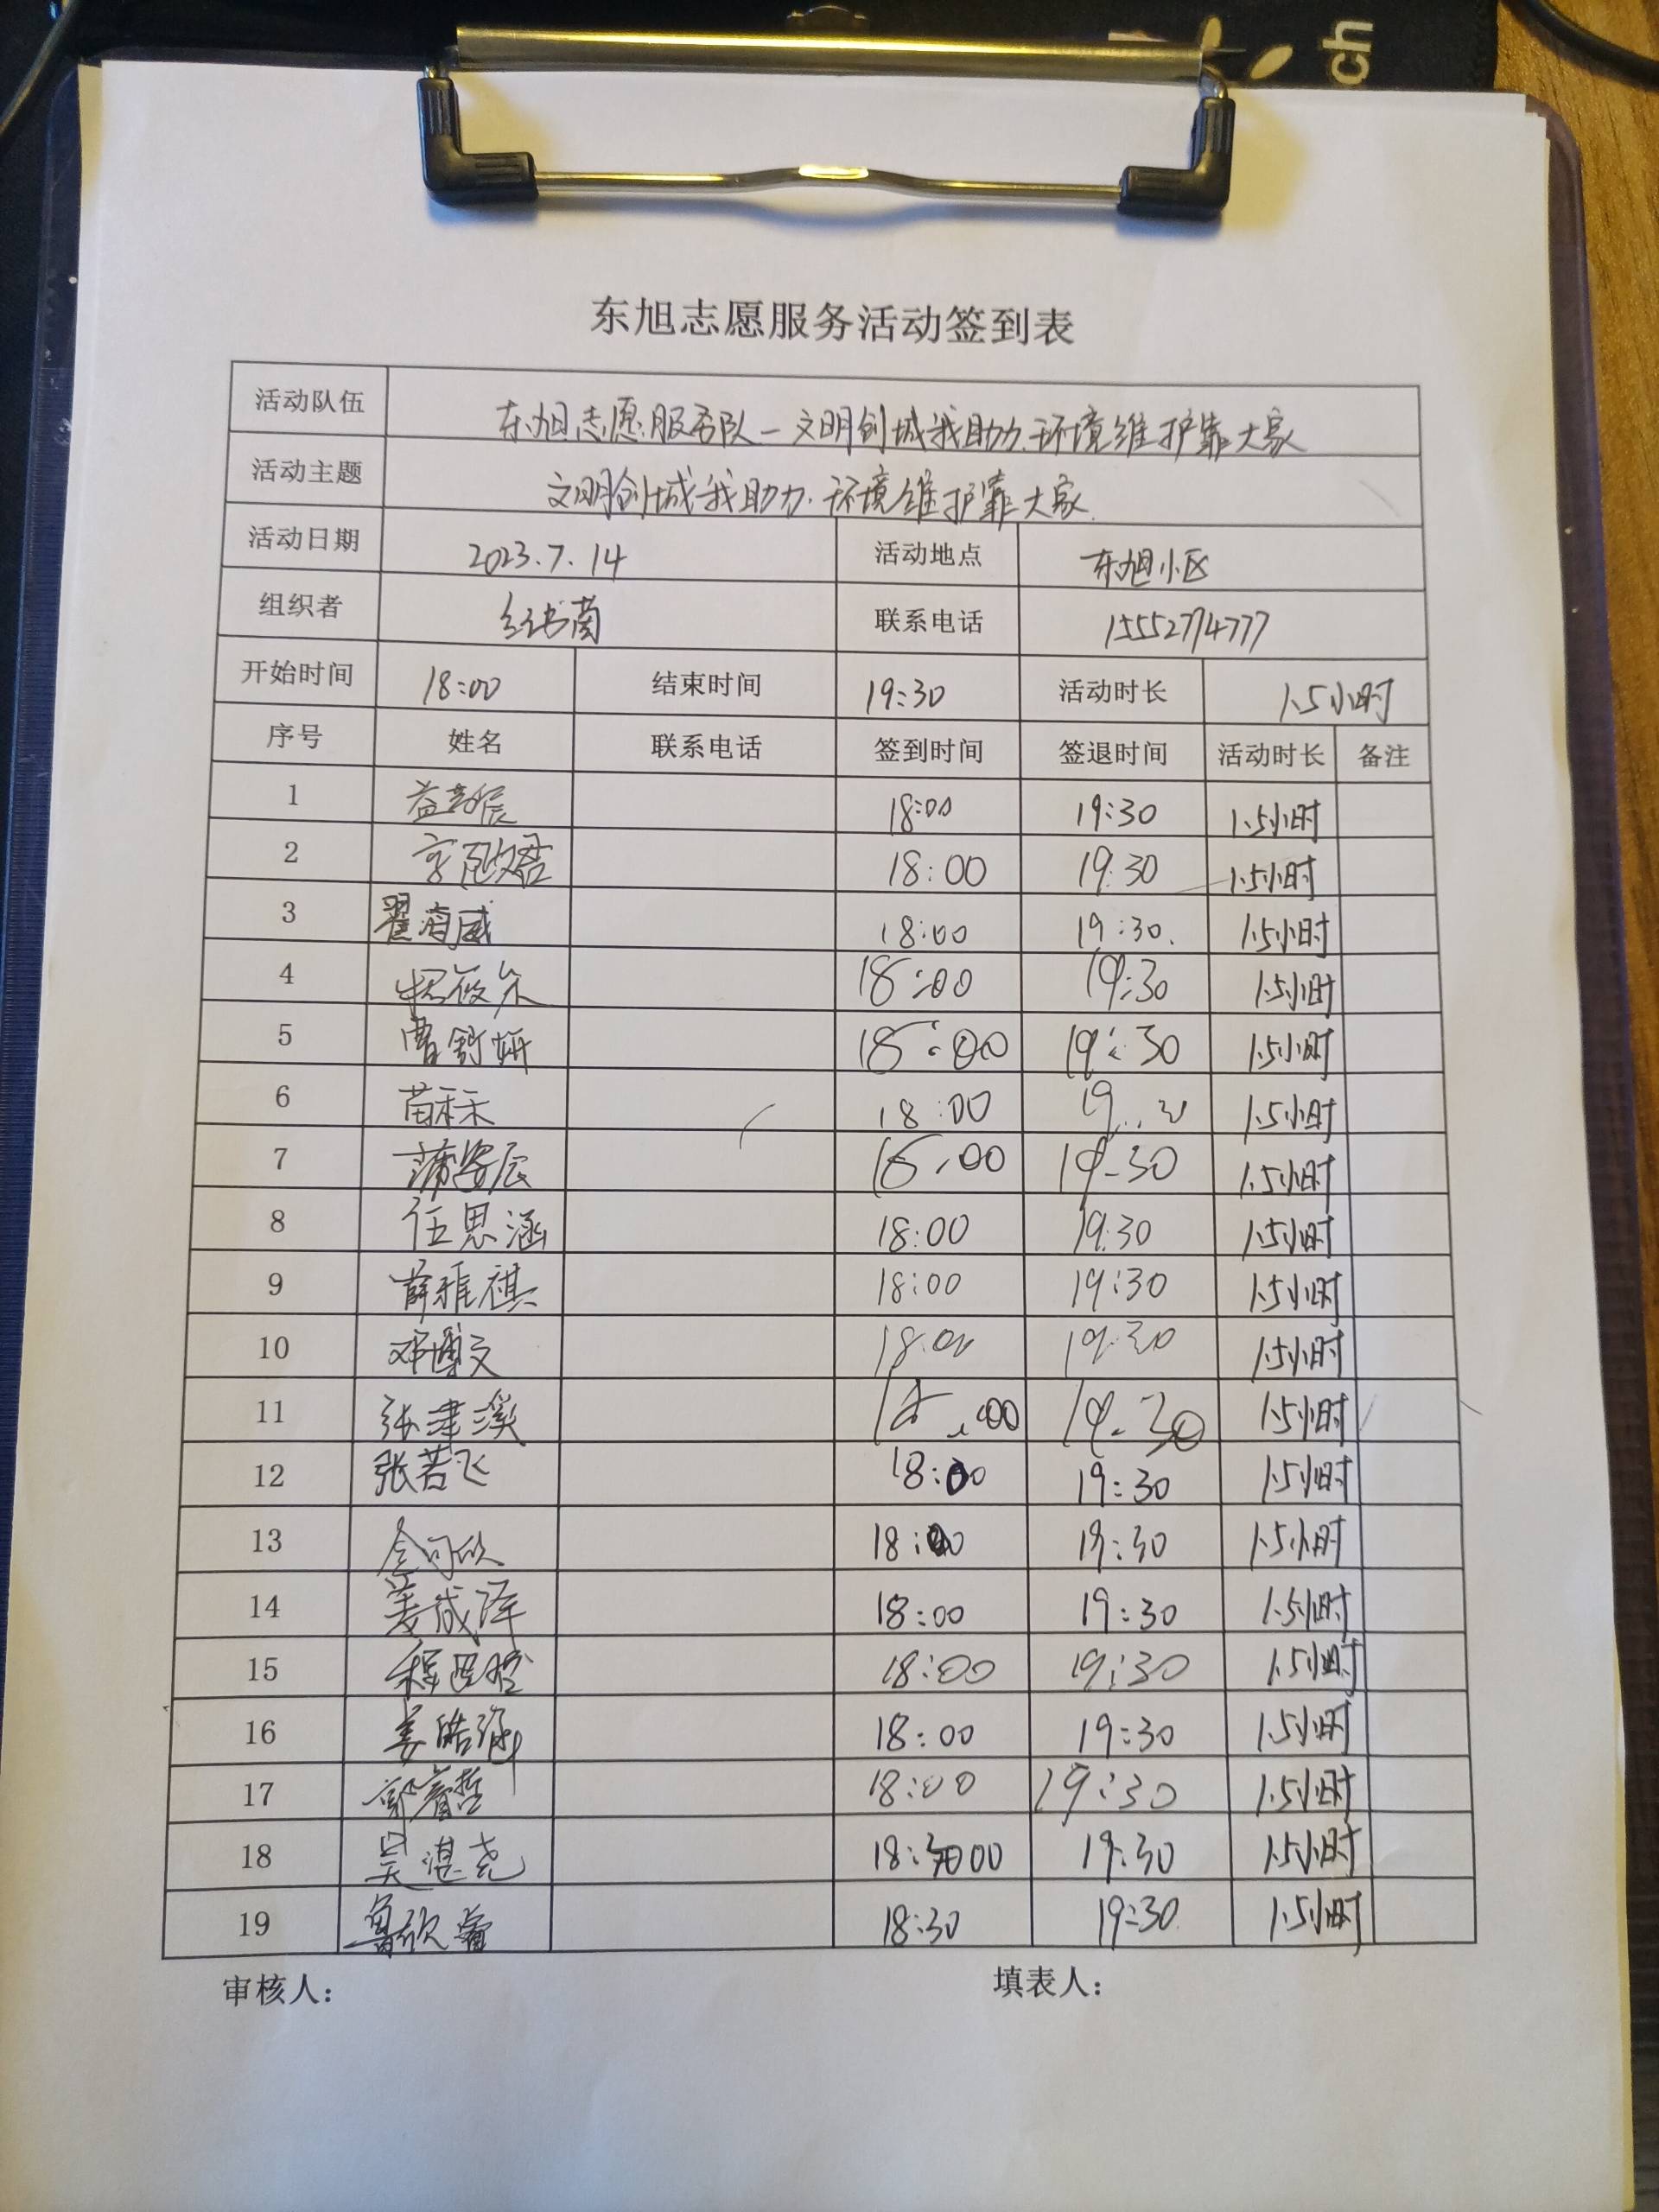 ch
东旭志愿服务活动签到表
活动队伍 东旭志愿服务队—文明创城我助力.环境维护靠大家
活动主题 文明创城我助力.环境维护靠大家.
活动日期 2023.7.14 活动地点 东旭小区
组织者 联系电话 15552774777
开始时间 18:00 结束时间 19:30 活动时长 1.5小时
序号 姓名 联系电话 签到时间 签退时间 活动时长 备注
1 18:00 19:30 1.5小时
2 18:00 19:30 1.5小时
3 翟海威 18:00 19:30. 1.5小时
4 18:00 19:30 1.5小时
5 曹舒妍 18:00 19:30 1.5小时
6 苗禾禾 18:00 1.5小时
7 蒲姿辰 18:00 19:30 1.5小时
8 伍思涵 18:00 19:30 1.5小时
9 薛雅祺 18:00 19:30 1.5小时
10 邓博文 18:00 19:30 1.5小时
11 张津溪 18:00 19:30 1.5小时
12 张若飞 18:00 19:30 1.5小时
13 18:00 19:30 1.5小时
14 姜成泽 18:00 19:30 1.5小时
15 18:00 19:30 1.5小时
16 姜皓涵 18:00 19:30 1.5小时
17 郭睿哲 18:00 19:30 1.5小时
18 吴湛尧 18:00 19:30 1.5小时
19 鲁欣睿 18:30 19:30 1.5小时
审核人： 填表人：